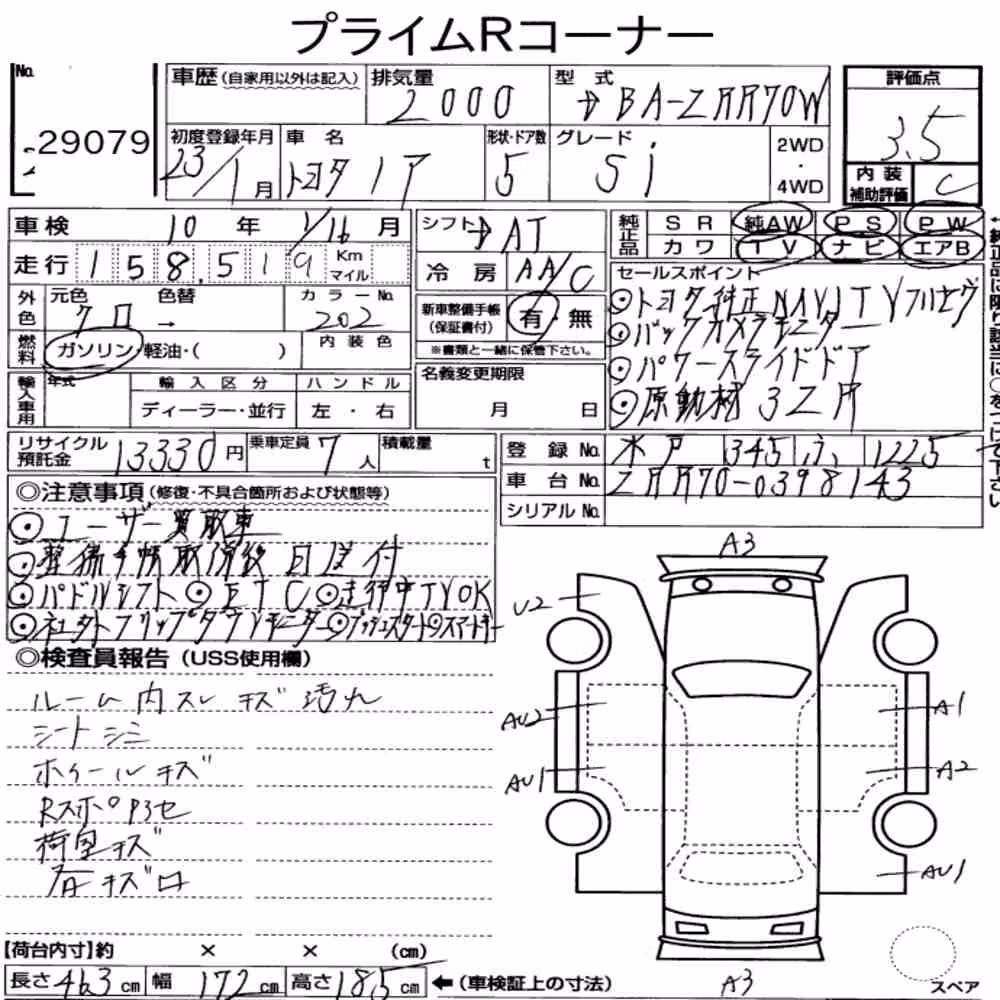 プライムRコーナー
No. 29079
車歴 (自家用以外は記入) 排気量 2000 型式 DBA-ZRR70W 評価点 3.5
初度登録年月 23/1月 車名 トヨタ ノア 形状・ドア数 5 グレード Si 2WD・4WD 内装補助評価 C
車検 10年 1/16月 シフト AT 純正品 SR 純AW PS PW
カワ TV ナビ エアB
走行 158,519 Km マイル 冷房 AA/C
外色 元色 クロ 色替 → カラーNo. 202
燃料 ガソリン・軽油・( ) 内装色
新車整備手帳(保証書付) 有・無
※書類と一緒に保管下さい。
セールスポイント
⊙トヨタ純正NAVI TVフルセグ
⊙バックカメラモニター
⊙パワースライドドア
⊙原動機 3ZR
輸入車用 年式 輸入区分 ハンドル
ディーラー・並行 左・右
名義変更期限 月 日
リサイクル預託金 13330円 乗車定員 7人 積載量 t
登録No. 水戸 345 ふ 1225
車台No. ZRR70-0398143
シリアルNo.
◎注意事項(修復・不具合箇所および状態等)
⊙ユーザー買取車
⊙整備手帳取得後 日送付
⊙パドルシフト ⊙ETC ⊙走行中TVOK
⊙社外フリップダウンモニター ⊙プッシュスタート ⊙スマートキー
◎検査員報告(USS使用欄)
ルーム内スレ キズ 汚れ
シート シミ
ホイール キズ
Rスポ P3セ
荷室キズ
キズロ
A3
U2
AU2
A1
AU1
A2
AU1
A3
スペア
【荷台内寸】約 × × (cm)
長さ 463 cm 幅 172 cm 高さ 185 cm ←(車検証上の寸法)